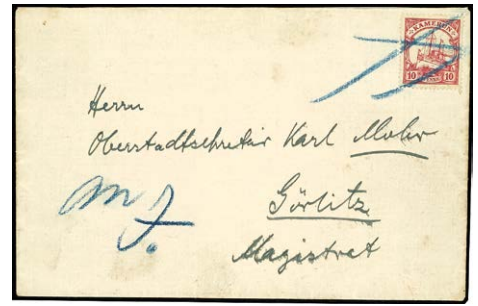 KAMERUN
10 10
Herrn
Oberstadtsekretär Karl Mohr
Görlitz
Magistrat